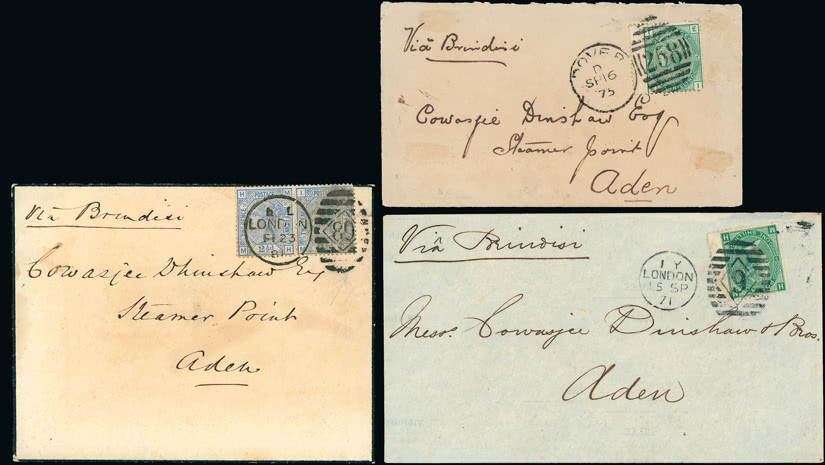 Viâ Brindisi
DOVER
D
SP 16
75
258
Cowasjee Dinshaw Esq
Steamer point
Aden
Viâ Brindisi
LONDON
FE 23
Cowasjee Dhinshaw Esq
Steamer Point
Aden
Viâ Brindisi
1 Y
LONDON
15 SP
71
Messrs. Cowasjee Dinshaw & Bros.
Aden